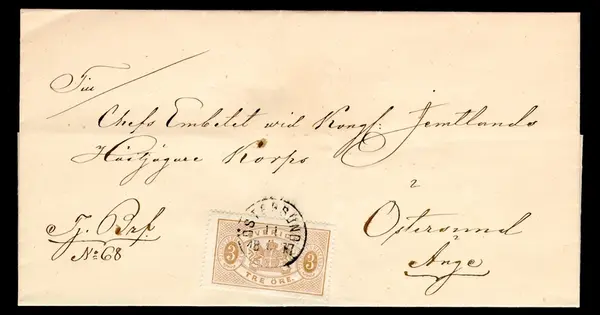 Till
Chefs Embetet wid Kongl: Jemtlands
Hästjägare Korps
i
Östersund
Ånge
Tj. Brf.
No 68
ÖSTERSUND
11
3 3
TRE ÖRE